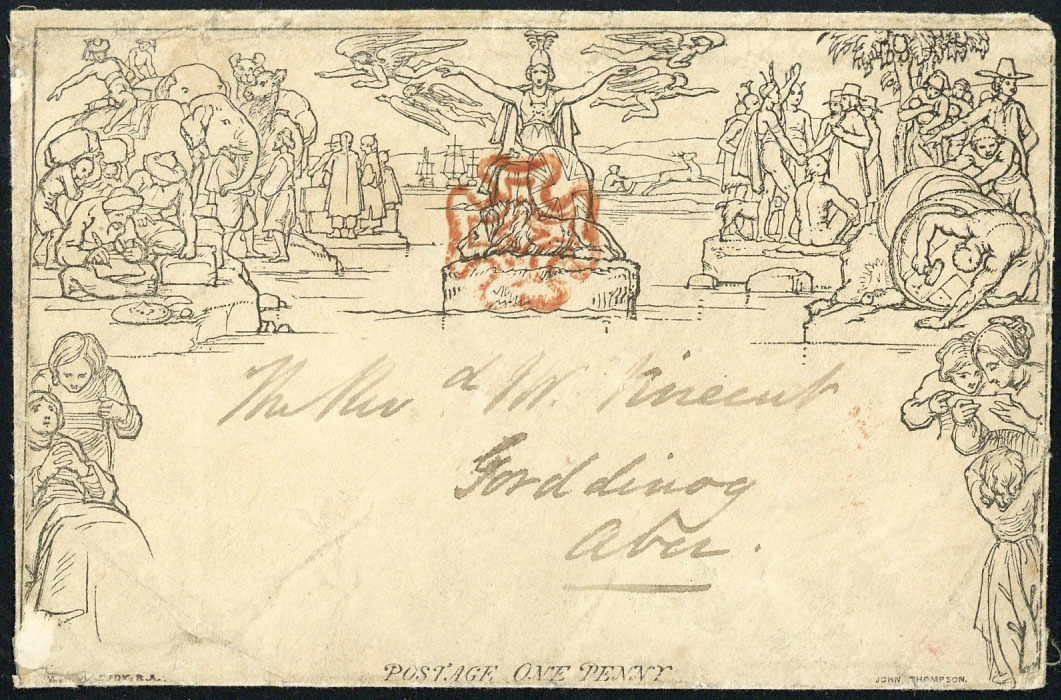 The Revd W. Vincent
Gorddinog
Aber.
POSTAGE ONE PENNY
R.A.
JOHN THOMPSON.